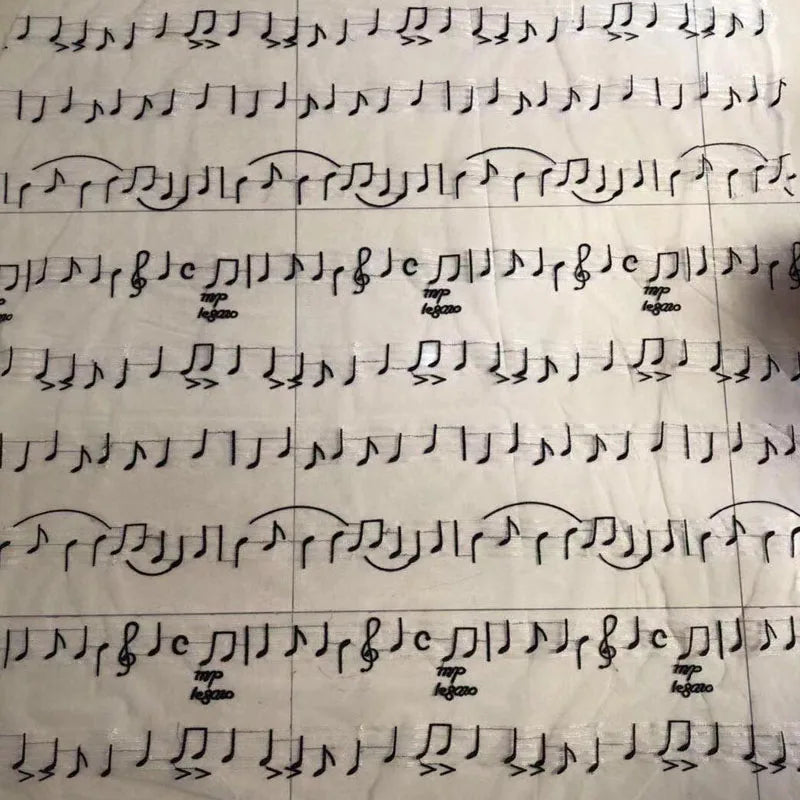 mp mp mp
legato legato legato
mp mp mp
legato legato legato